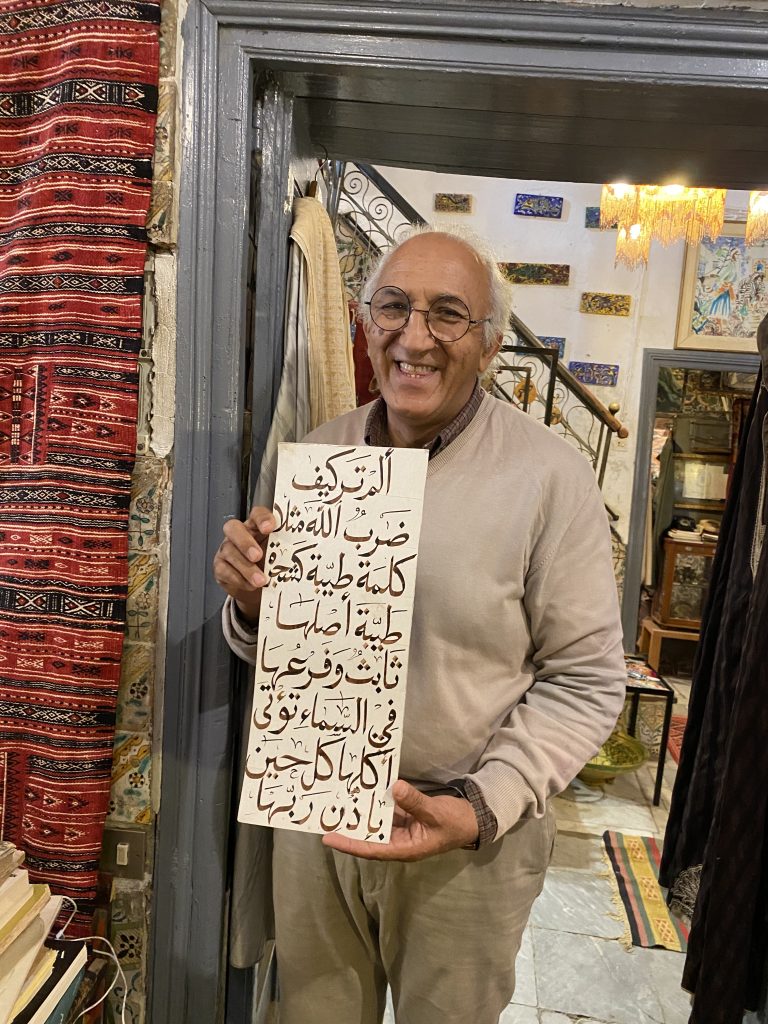 ألم تر كيف
ضَربُ الله مثلا
كلمة طيّبة كشجرة
طيّبَة أصلها
ثابتُ وَفَرعُهَا
في السّماءِ تؤتي
أكلها كل حين
بإذن رَبّهَا